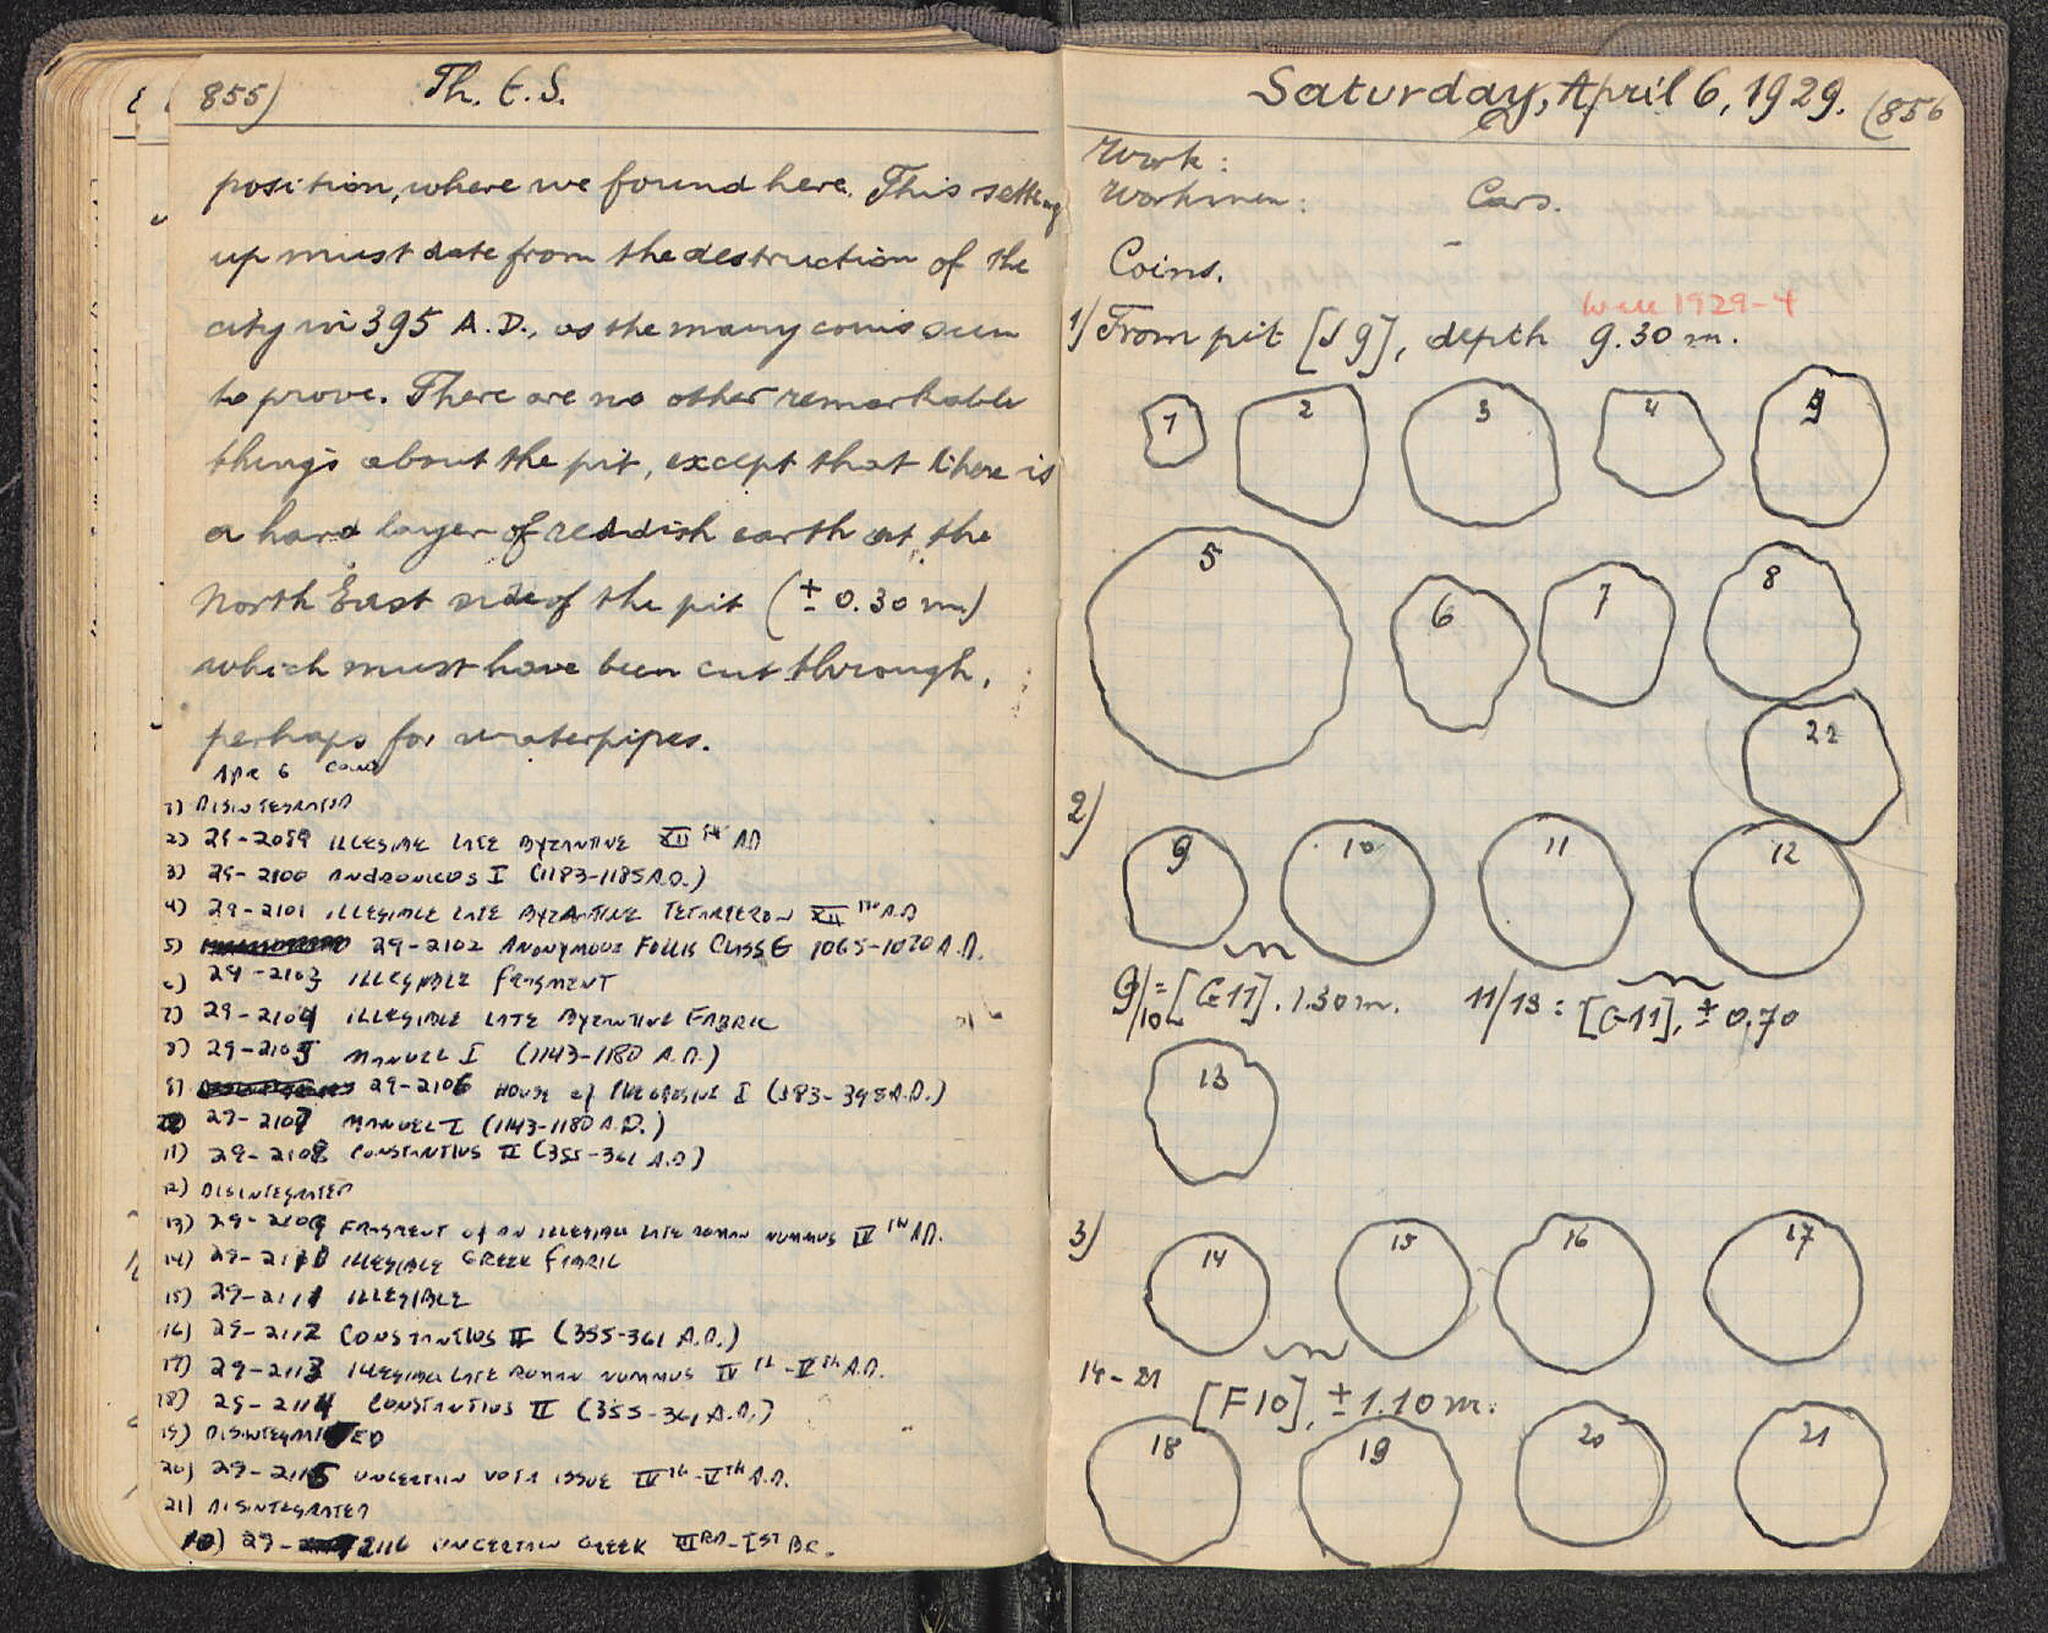 855)
Th. E. S.
position, where we found here. This setting
up must date from the destruction of the
city in 395 A.D., as the many coins seem
to prove. There are no other remarkable
things about the pit, except that there is
a hard layer of reddish earth at the
North East side of the pit (± 0.30 m)
which must have been cut through,
perhaps for waterpipes.
Apr 6 coins
1) DISINTEGRATED
2) 29-2099 ILLEGIBLE LATE BYZANTINE XII TH AD
3) 29-2100 ANDRONICUS I (1183-1185 A.D.)
4) 29-2101 ILLEGIBLE LATE BYZANTINE TETARTERON XII TH A.D
5) 29-2102 ANONYMOUS FOLLIS CLASS G 1065-1070 A.D.
6) 29-2103 ILLEGIBLE FRAGMENT
7) 29-2104 ILLEGIBLE LATE BYZANTINE FABRIC
8) 29-2105 MANUEL I (1143-1180 A.D.)
9) 29-2106 HOUSE of THEODOSIUS I (383-395 A.D.)
29-2107 MANUEL I (1143-1180 A.D.)
11) 29-2108 CONSTANTIUS II (355-361 A.D)
12) DISINTEGRATED
13) 29-2109 FRAGMENT of AN ILLEGIBLE LATE ROMAN NUMMUS IV TH AD.
14) 29-2110 ILLEGIBLE GREEK FABRIC
15) 29-2111 ILLEGIBLE
16) 29-2112 CONSTANTIUS II (355-361 A.D.)
17) 29-2113 ILLEGIBLE LATE ROMAN NUMMUS IV TH - V TH A.D.
18) 29-2114 CONSTANTIUS II (355-361 A.D.)
19) DISINTEGRATED
20) 29-2115 UNCERTAIN VOTA ISSUE IV TH - V TH A.D.
21) DISINTEGRATED
10) 29-2116 UNCERTAIN GREEK III RD - I ST BC.
Saturday, April 6, 1929. (856
Work:
Workmen: Cars.
-
Coins.
Well 1929-4
1) From pit [J9], depth 9.30 m.
1 2 3 4 4
5 6 7 8
22
2)
9 10 11 12
9/10 = [G11]. 1.30 m. 11/13: [G11], ± 0.70
13
3)
14 15 16 17
14-21 [F10], ± 1.10 m.
18 19 20 21